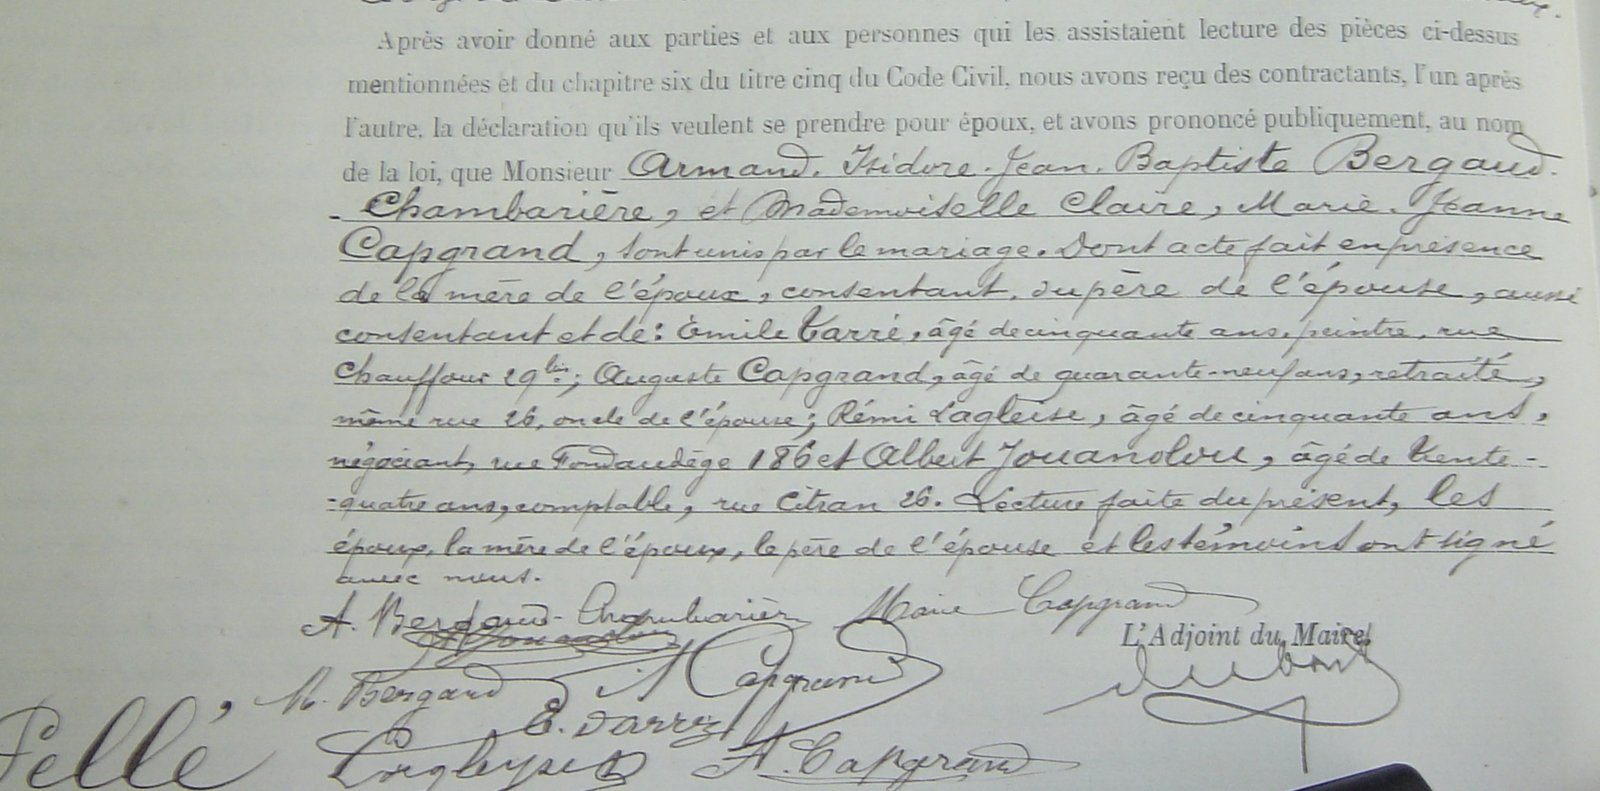 Après avoir donné aux parties et aux personnes qui les assistaient lecture des pièces ci-dessus
mentionnées et du chapitre six du titre cinq du Code Civil, nous avons reçu des contractants, l'un après
l'autre, la déclaration qu'ils veulent se prendre pour époux, et avons prononcé publiquement, au nom
de la loi, que Monsieur Armand. Isidore. Jean. Baptiste Bergaud.
- Chambarière, et Mademoiselle Claire, Marie. Jeanne
Capgrand, sont unis par le mariage. Dont acte fait en présence
de la mère de l'époux, consentant. du père de l'épouse, aussi
consentant et de: Émile Tarré, âgé de cinquante ans, peintre, rue
Chauffour 29 bis; Auguste Capgrand, âgé de quarante-neuf ans, retraité,
même rue 26, oncle de l'épouse; Rémi Lagleise, âgé de cinquante ans,
négociant, rue Fondaudège 186 et Albert Jouanolou, âgé de trente-
-quatre ans, comptable, rue Citran 26. Lecture faite du présent, les
époux, la mère de l'époux, le père de l'épouse et les témoins ont signé
avec nous.
A. Bergaud-Chambarière Marie Capgrand
L'Adjoint du Maire
M. Bergaud Capgrand
E. Darré
A. Capgrand
Pellé